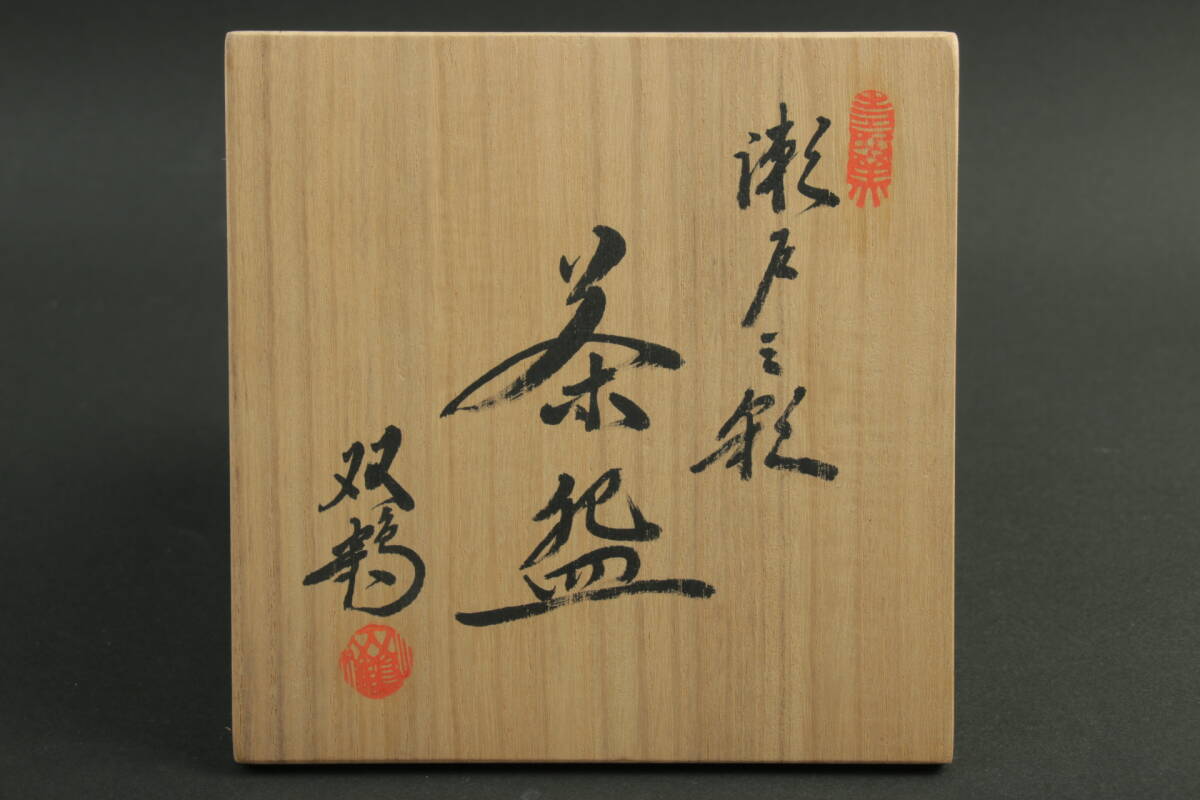 瀬戸三彩
茶盌
双鶴